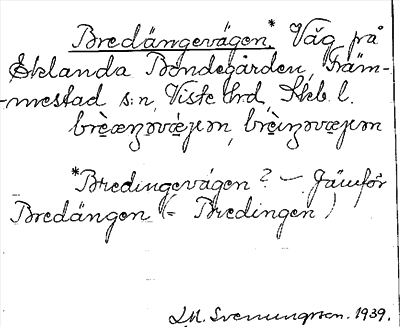 Bredängevägen.* Väg på
Eklanda Bondegården, Främ-
-mestad s:n, Viste hrd, Skb. l.
brèæŋəvǽjən, brèiŋəvæjən
*Bredingevägen? – Jämför
Bredängen (= Bredingen)
J.M. Svenungsson. 1939.